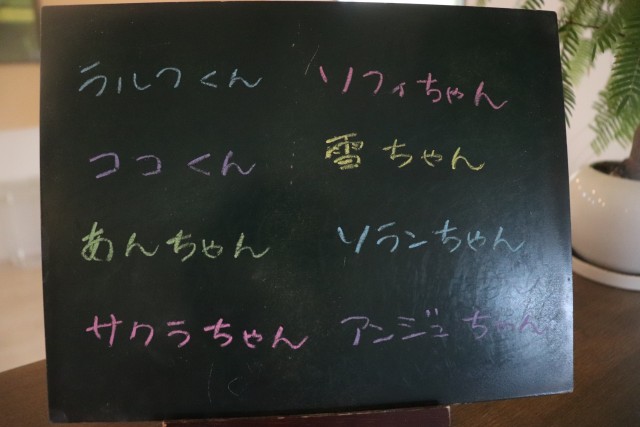 ラルフくん ソフィちゃん
ココくん 雪ちゃん
あんちゃん ソランちゃん
サクラちゃん アンジュちゃん